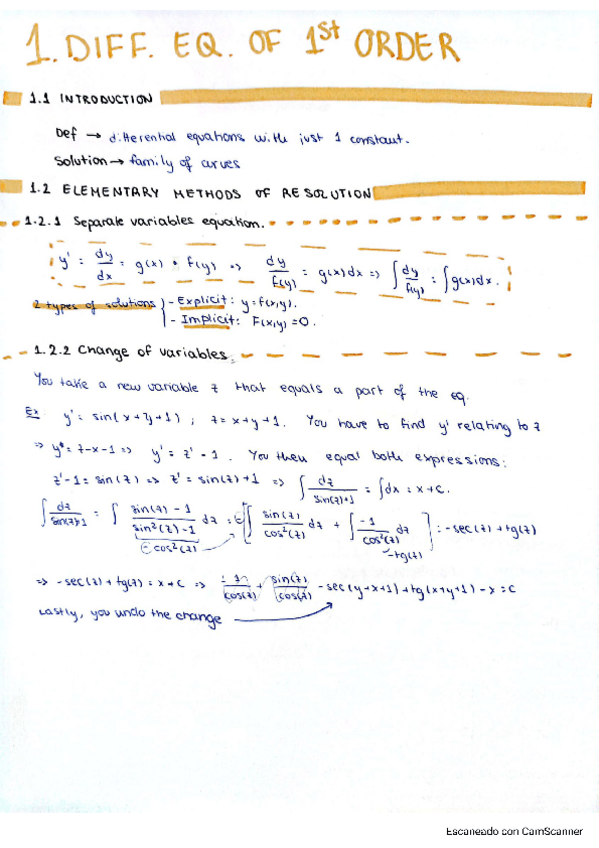 1. DIFF. EQ. OF 1st ORDER
1.1 INTRODUCTION
Def → differential equations with just 1 constant.
Solution → family of curves
1.2 ELEMENTARY METHODS OF RESOLUTION
1.2.1 Separate variables equation.
y' = dy/dx = g(x) • f(y) => dy/f(y) = g(x)dx => ∫ dy/f(y) = ∫ g(x)dx.
2 types of solutions } - Explicit: y=f(x,y).
- Implicit: F(x,y)=0.
1.2.2 Change of variables
You take a new variable z that equals a part of the eq.
Ex y' = sin(x+y+1) ; z=x+y+1. You have to find y' relating to z
=> y = z-x-1 => y' = z'-1. You then equal both expressions:
z'-1 = sin(z) => z' = sin(z)+1 => ∫ dz/sin(z)+1 = ∫dx = x+c.
∫ dz/sin(z)+1 = ∫ sin(z)-1/sin²(z)-1 dz = [∫ sin(z)/cos²(z) dz + ∫ -1/cos²(z) dz] = -sec(z)+tg(z)
-cos²(z) -tg(z)
=> -sec(z)+tg(z) = x+c => -1/cos(z) + sin(z)/cos(z) -sec(y+x+1)+tg(x+y+1)-x=c
Lastly, you undo the change
Escaneado con CamScanner